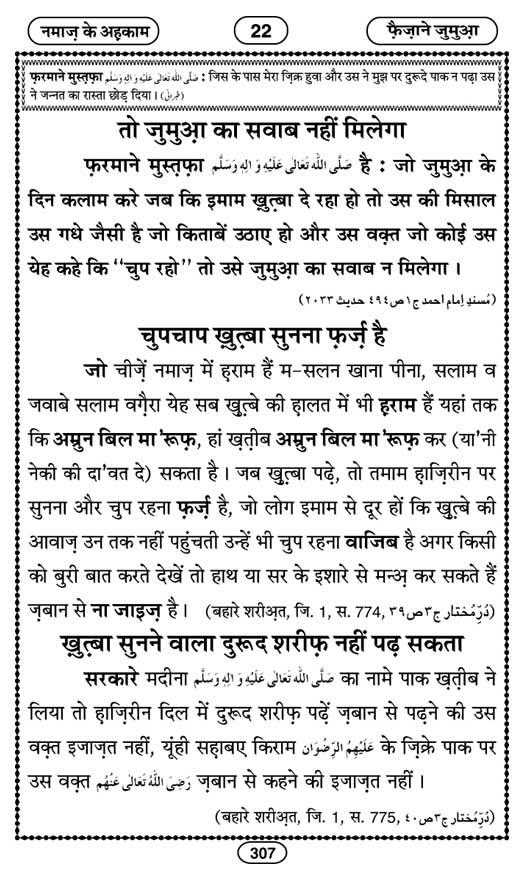 नमाज़ के अह़काम
22
फ़ैज़ाने जुमुआ़
फ़रमाने मुस्त़फ़ा صَلَّى اللّٰهُ تَعَالٰى عَلَيْهِ وَاٰلِهٖ وَسَلَّم : जिस के पास मेरा ज़िक्र हुवा और उस ने मुझ पर दुरूदे पाक न पढ़ा उस
ने जन्नत का रास्ता छोड़ दिया । (طبرانی)
तो जुमुआ़ का सवाब नहीं मिलेगा
फ़रमाने मुस्त़फ़ा صَلَّى اللّٰهُ تَعَالٰى عَلَيْهِ وَاٰلِهٖ وَسَلَّم है : जो जुमुआ़ के
दिन कलाम करे जब कि इमाम ख़ुत़्बा दे रहा हो तो उस की मिसाल
उस गधे जैसी है जो किताबें उठाए हो और उस वक़्त जो कोई उस
येह कहे कि “चुप रहो” तो उसे जुमुआ़ का सवाब न मिलेगा ।
(مُسندِ اِمام احمد ج١ ص٤٩٤ حدیث ٢٠٣٣)
चुपचाप ख़ुत़्बा सुनना फ़र्ज़ है
जो चीज़ें नमाज़ में ह़राम हैं म-सलन खाना पीना, सलाम व
जवाबे सलाम वग़ैरा येह सब ख़ुत़्बे की ह़ालत में भी ह़राम हैं यहां तक
कि अम्रुन बिल मा'रूफ़, हां ख़त़ीब अम्रुन बिल मा'रूफ़ कर (या'नी
नेकी की दा'वत दे) सकता है । जब ख़ुत़्बा पढ़े, तो तमाम ह़ाज़िरीन पर
सुनना और चुप रहना फ़र्ज़ है, जो लोग इमाम से दूर हों कि ख़ुत़्बे की
आवाज़ उन तक नहीं पहुंचती उन्हें भी चुप रहना वाजिब है अगर किसी
को बुरी बात करते देखें तो हाथ या सर के इशारे से मन्अ़ कर सकते हैं
ज़बान से ना जाइज़ है । (बहारे शरीअ़त, जि. 1, स. 774, دُرِّمُختار ج٣ ص٣٩)
ख़ुत़्बा सुनने वाला दुरूद शरीफ़ नहीं पढ़ सकता
सरकारे मदीना صَلَّى اللّٰهُ تَعَالٰى عَلَيْهِ وَاٰلِهٖ وَسَلَّم का नामे पाक ख़त़ीब ने
लिया तो ह़ाज़िरीन दिल में दुरूद शरीफ़ पढ़ें ज़बान से पढ़ने की उस
वक़्त इजाज़त नहीं, यूंही सह़ाबए किराम عَلَيْهِمُ الرِّضْوَان के ज़िक्रे पाक पर
उस वक़्त رَضِىَ اللّٰهُ تَعَالٰى عَنْهُم ज़बान से कहने की इजाज़त नहीं ।
(बहारे शरीअ़त, जि. 1, स. 775, دُرِّمُختار ج٣ ص٤٠)
307